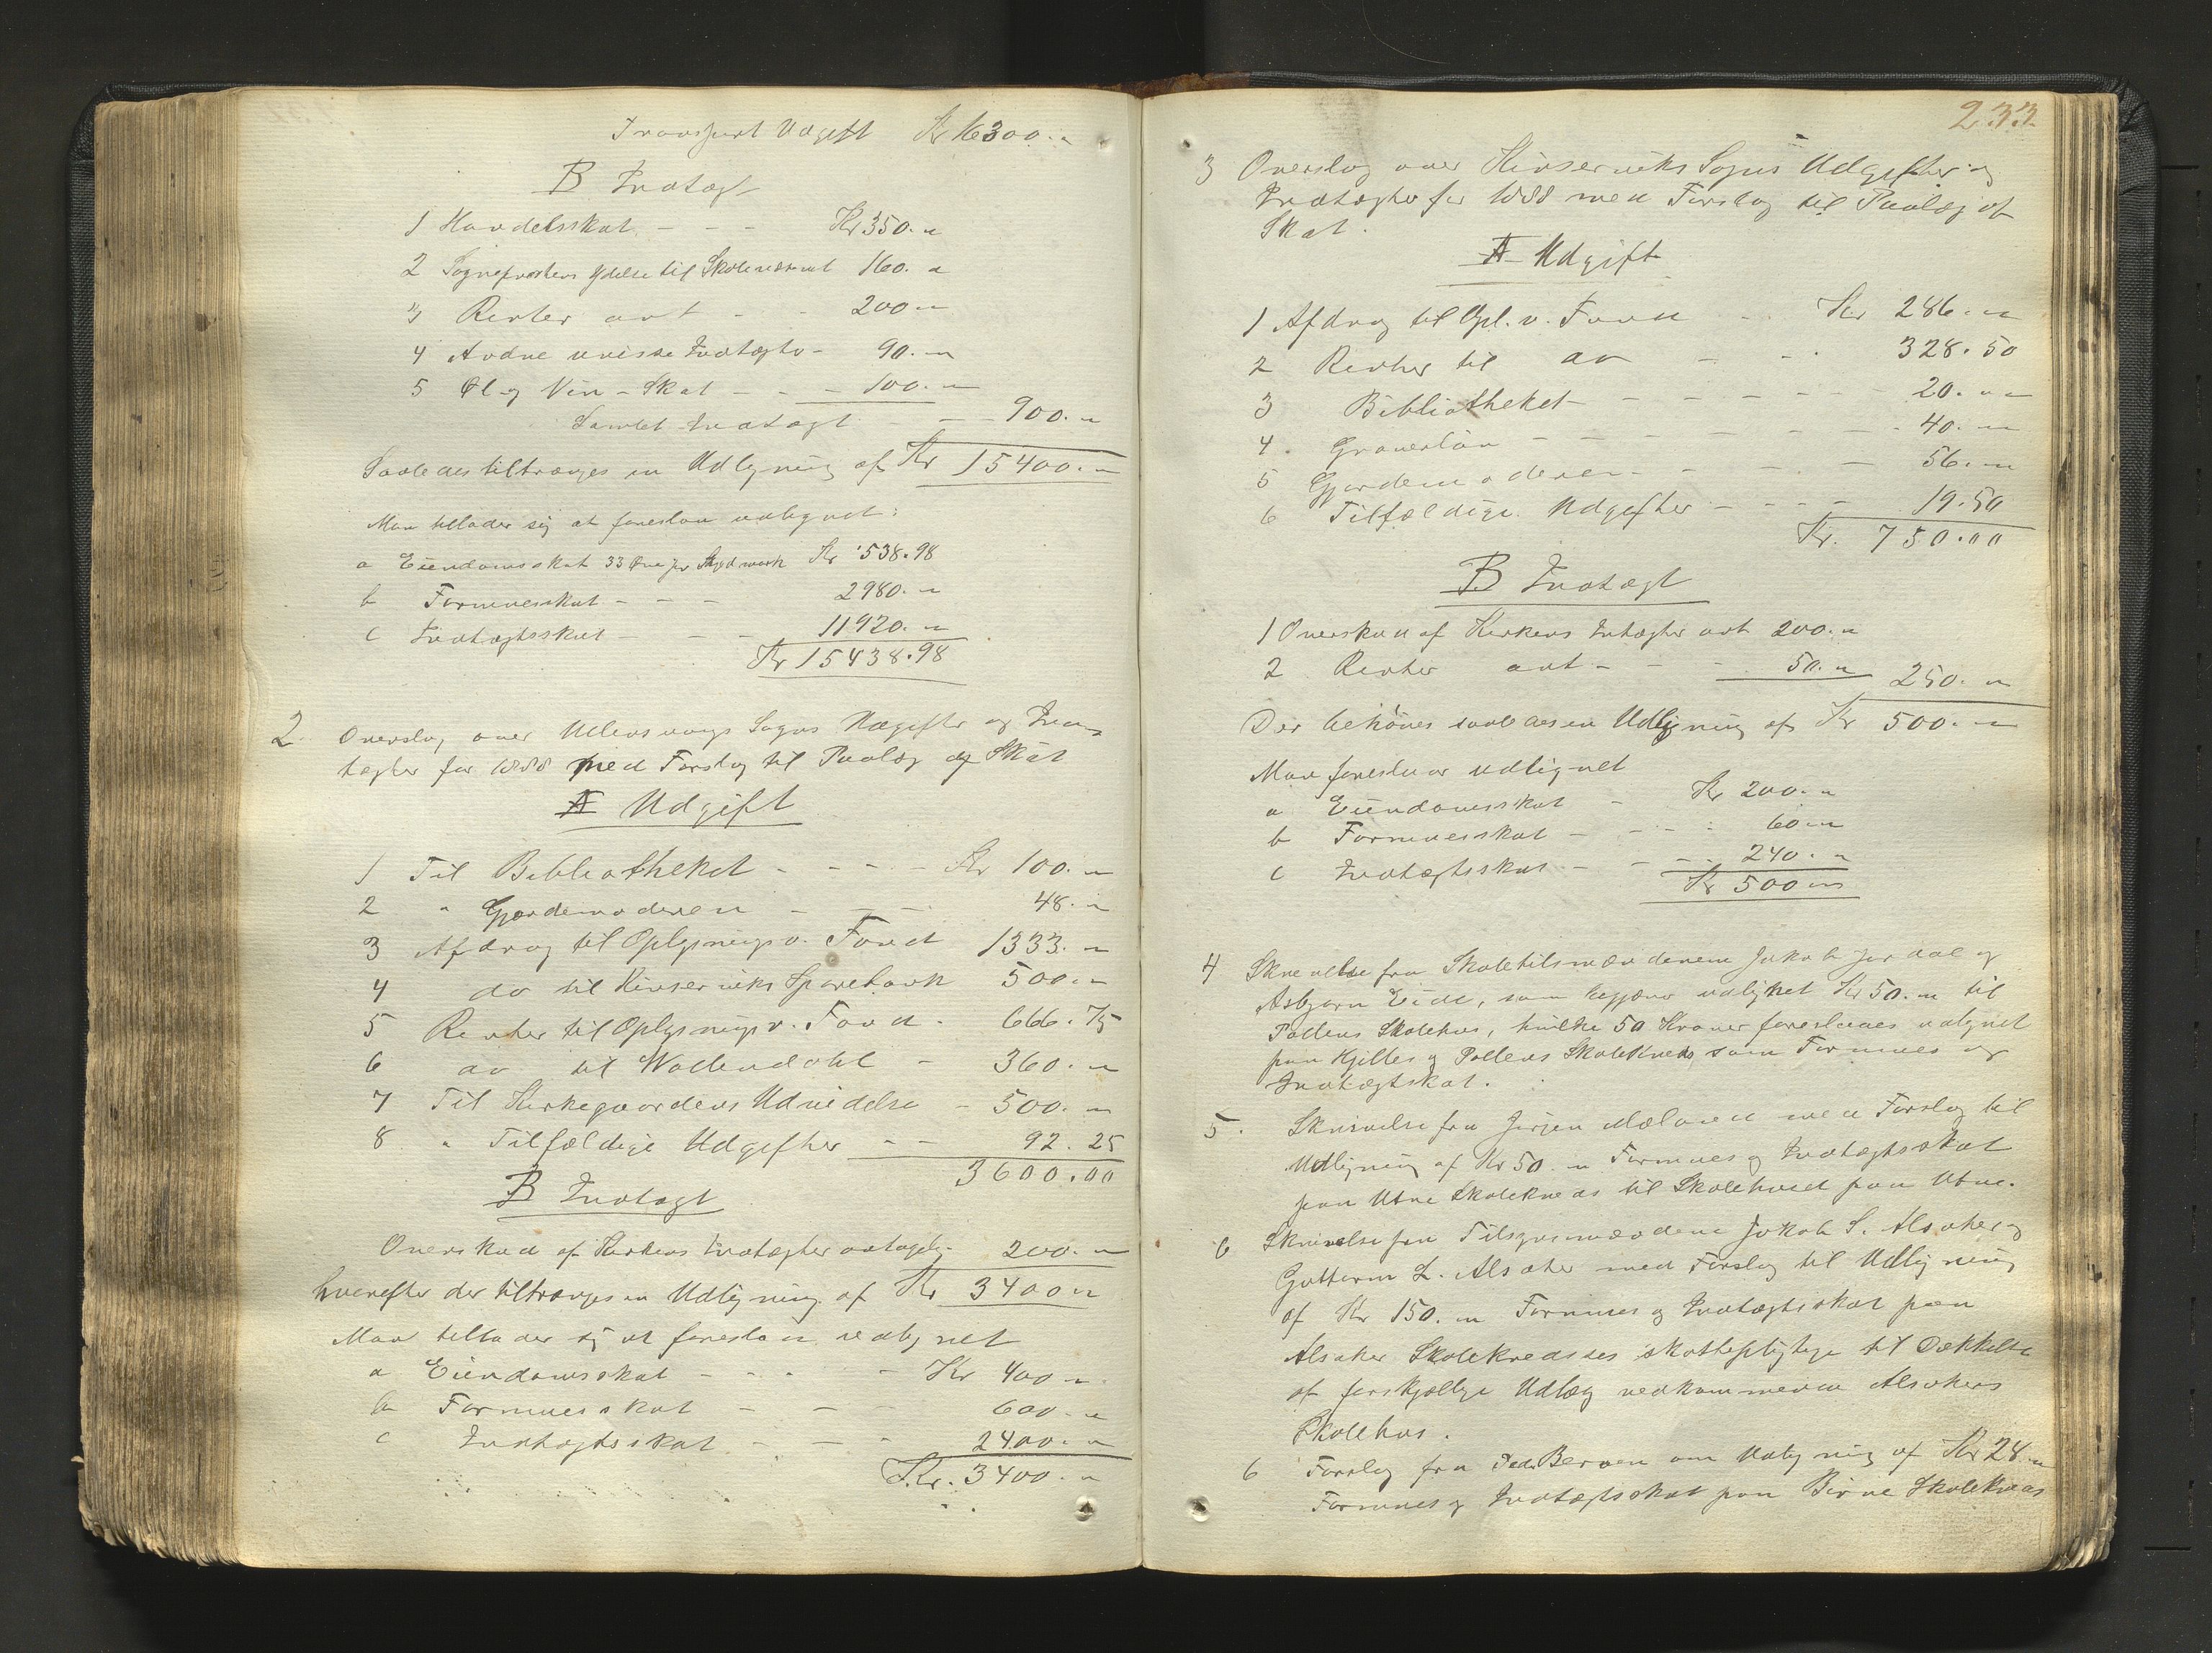 Transport Udgift Kr 16300. "
B Indtægt
1 Handelsskat - - - Kr 350. "
2 Sognepræstens Ydelse til Skolevæsenet 160. "
3 Renter ant - - 200 "
4 Andre uvisse Indtægter - 90. "
5 Øl og Vin-Skat - - 100. "
Samlet Indtægt - - 900. "
Saaledes tiltrænges en Udligning af Kr 15400. "
Man tillader sig at foreslaa udlignet:
a Eiendomsskat 33 Øre pr Skyldmark Kr 538.98
b Formuesskat - - - 2980. "
c Indtægtsskat - - - 11920. "
Kr 15438.98
2. Overslag over Ullensvangs Sogns Udgifter og Ind-
tægter for 1888 med Forslag til Paalæg af Skat
A Udgift
1 Til Bibliotheket - - - - Kr 100. "
2 " Gjordemoderen - - - 48. "
3 Afdrag til Oplysningsv. Fond 1333. "
4 do til Kinserviks Sparebank 500. "
5 Renter til Oplysningsv. Fond - 666.75
6 do til Wallendahl - 360. "
7 Til Kirkegaardens Udvidelse - 500. "
8 " Tilfældige Udgifter - - 92.25
3600.00
B Indtægt
Overskud af Kirkens Indtægter antagelig 200. "
hvorefter der tiltrænges en Udligning af Kr 3400 "
Man tillader sig at foreslaa udlignet
a Eiendomsskat - - - - Kr 400 "
b Formuesskat - - 600. "
c Indtægtsskat - - - 2400. "
Kr. 3400. "
233
3 Overslag over Kinserviks Sogns Udgifter og
Indtægter for 1888 med Forslag til Paalæg af
Skat.
A Udgift
1 Afdrag til Opl. v. Fond - - Kr 286. "
2 Renter til do - - - 328.50
3 Bibliotheket - - - - - 20. "
4. Graverløn - - - - - - 40. "
5 Gjordemoderen - - - - 56. "
6 Tilfældige Udgifter - - - 19.50
Kr. 750.00
B Indtægt
1 Overskud af Kirkens Indtægter ant 200. "
2 Renter ant - - - 50. " 250. "
Der behøves saaledes en Udligning af Kr 500. "
Man foreslaar udlignet
a Eiendomsskat - Kr 200. "
b Formuesskat - - - 60 "
c Indtægtsskat - - - 240. "
Kr 500 "
4 Skrivelse fra Skoletilsmændenene Jakob Jordal og
Asbjørn Eide, som begjærer udlignet Kr 50. " til
Pollens Skolehus, hvilke 50 Kroner foreslaaes udlignet
paa Hjelles og Pollens Skolekreds som Formues og
Indtægtskat.
5. Skrivelse fra Jørgen Mæland med Forslag til
Udligning af Kr 50. " Formues og Indtægtsskat
paa Utne Skolekreds til Skolehuset paa Utne.
6 Skrivelse fra Tilsynsmændene Jakob S. Alsaker og
Guttorm L. Alsaker med Forslag til Udligning
af Kr 150. " Formues og Indtægtsskat paa
Alsaker Skolekredses skattepligtige til Dækkelse
af forskjellige Udlæg vedkommende Alsakers
Skolehus.
6 Forslag fra Peder Berven om Udligning af Kr 28. "
Formues og Indtægtsskat paa Birve Skolekreds